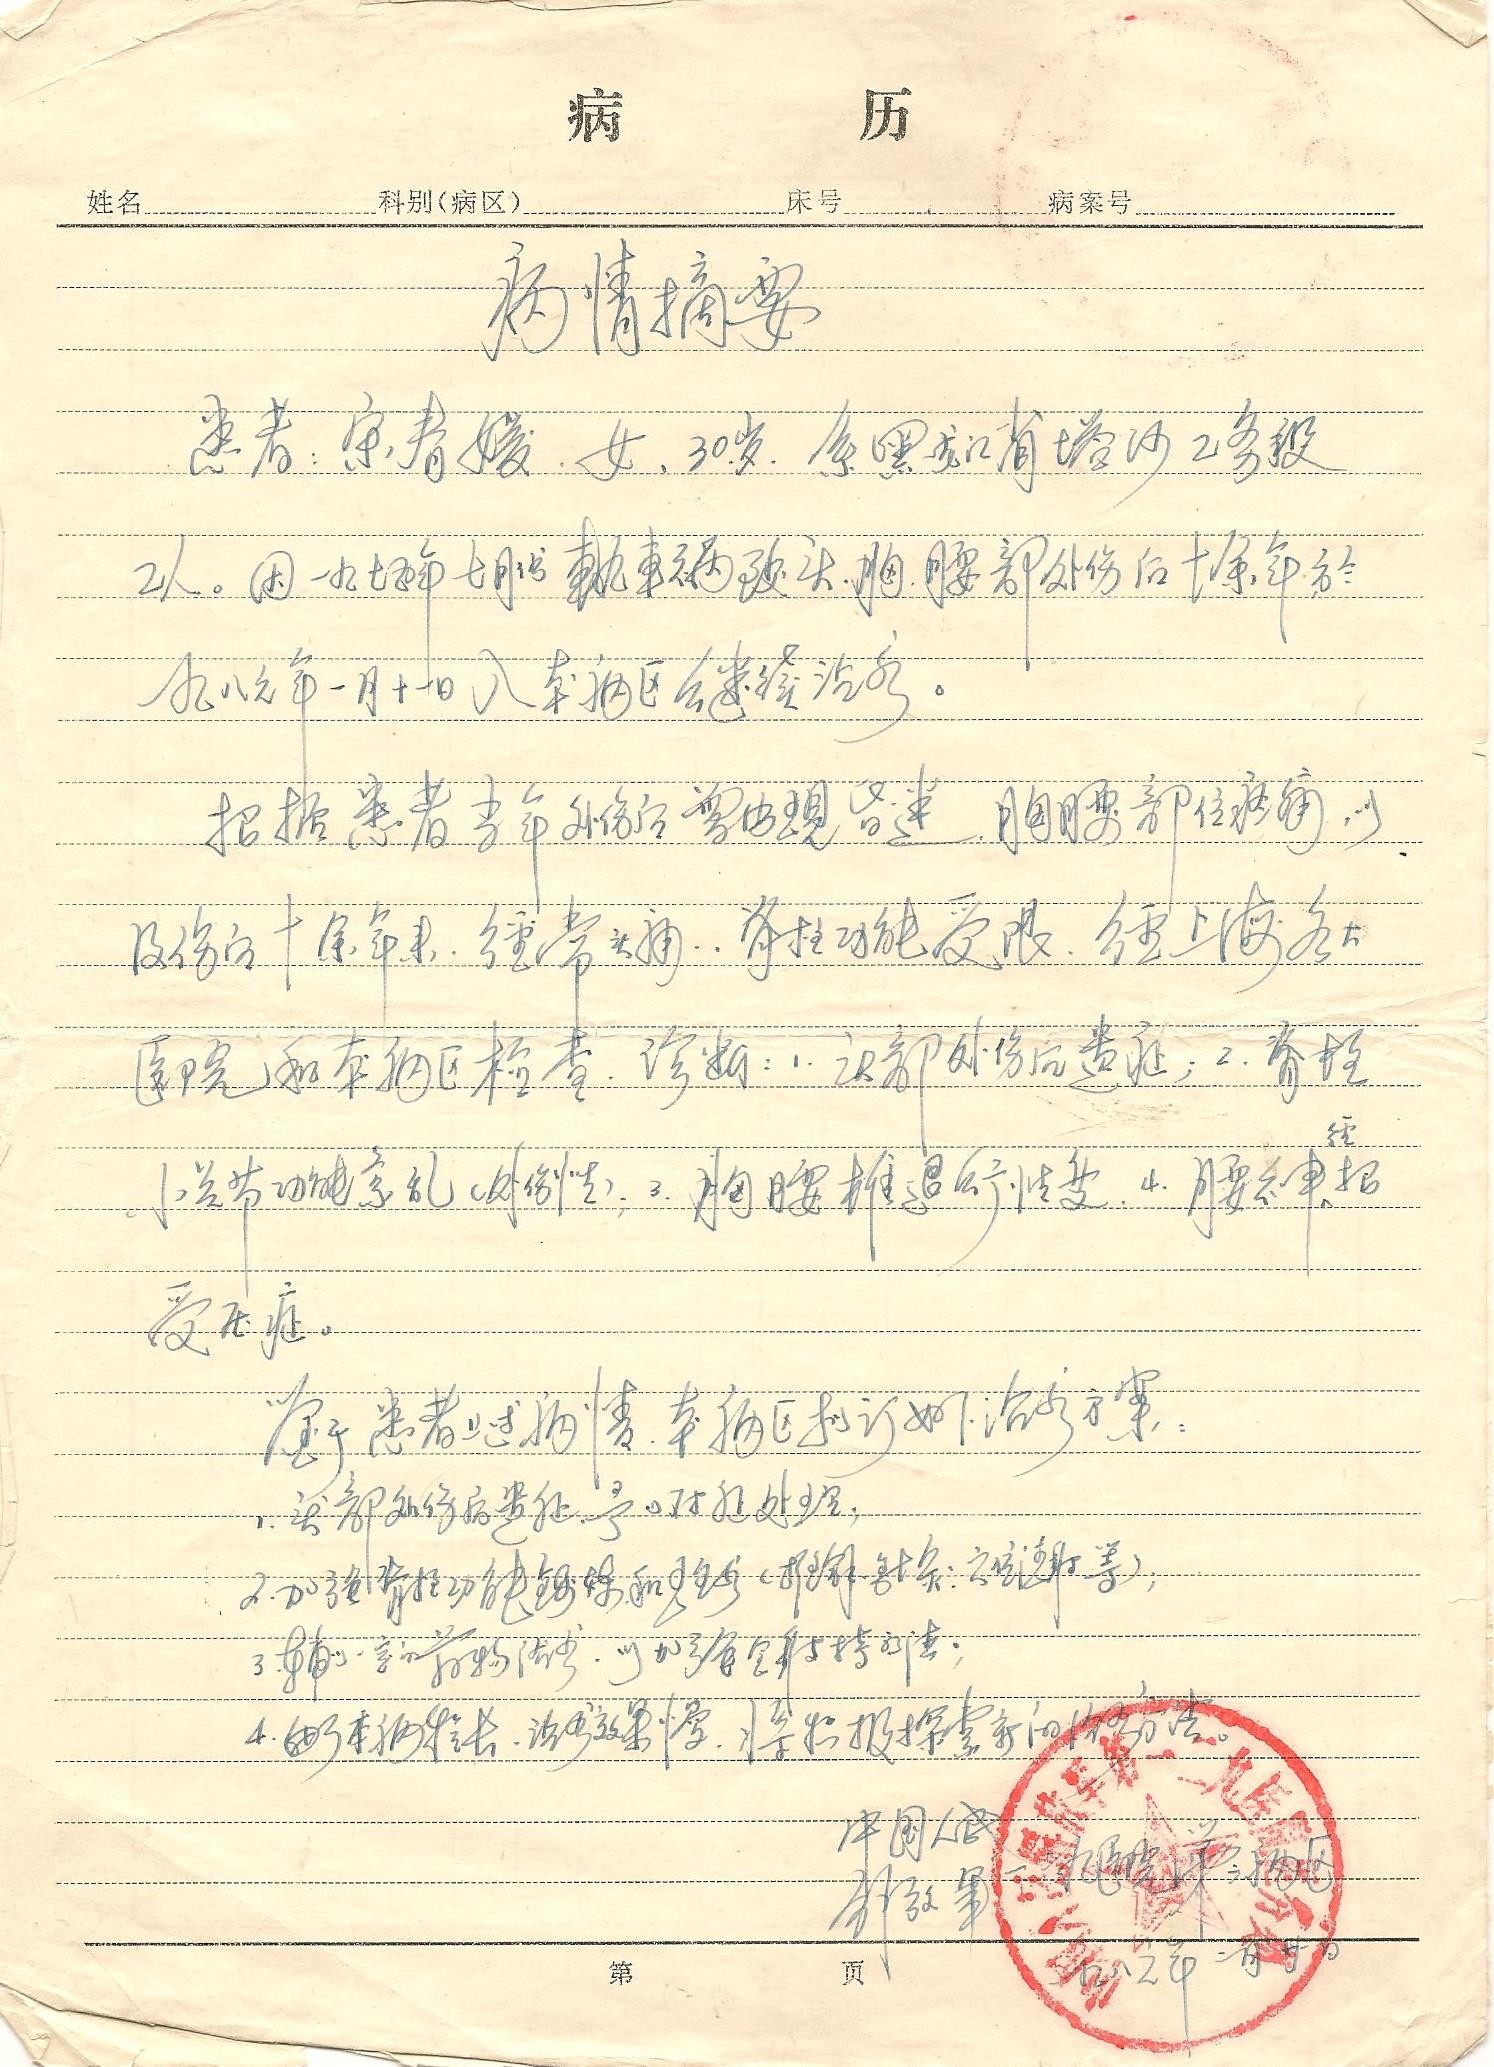 病 历
姓名 科别(病区) 床号 病案号
病情摘要
患者:宋青媛.女、30岁.系黑龙江省塔河工务段
工人。因一九七五年七月份軋車祸致头.胸.腰部外伤后十余年於
一九八六年一月十一日入本病区继续治疗。
根据患者当年外伤后曾出现昏迷.胸腰部位疼痛.以
及伤后十余年来.经常头痛..脊柱功能受限.经上海各大
医院和本病区检查.诊断:1.头部外伤后遗症;2.脊柱
小关节功能紊乱(外伤性);3.胸腰椎退行性变.4.腰神经根
受压症。
鉴于患者上述病情.本病区拟订如下治疗方案:
1.头部外伤后遗症.予以对症处理;
2.加强脊柱功能锻炼和理疗(推拿.针灸.穴位注射等);
3.辅以一定的药物治疗.以加强自身支持疗法;
4.由于本病程长.治疗效果慢.将积极探索新的治疗方法。
中国人民
解放军一 九医院第六病区
一九八六年二月廿日
第 页